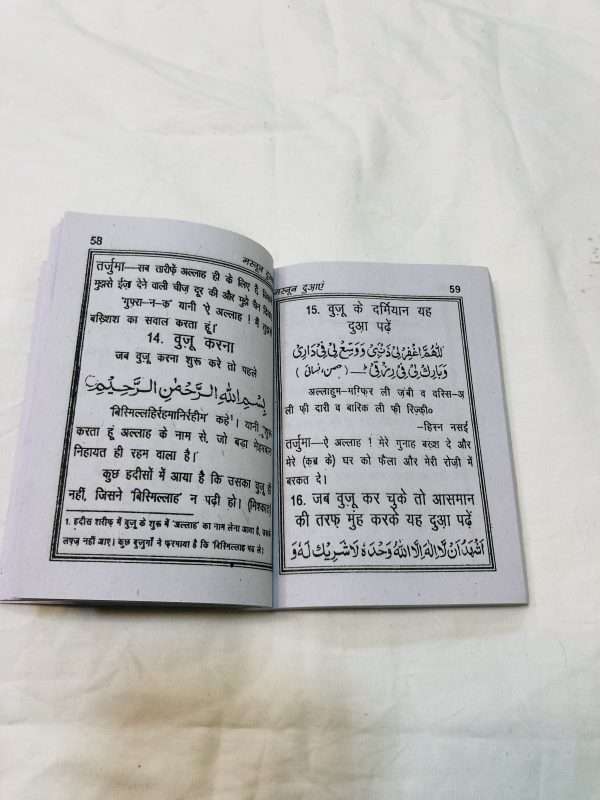 58
मस्नून
तर्जुमा—सब तारीफ़ें अल्लाह ही के लिए है,
मुझसे ईज़ा देने वाली चीज़ दूर की और मुझे चैन
'गुफ़्रा-न-क' यानी 'ऐ अल्लाह ! मैं तुझसे
बख़्शिश का सवाल करता हूं।'
14. वुज़ू करना
जब वुज़ू करना शुरू करे तो पहले
بِسْمِ اللهِ الرَّحْمٰنِ الرَّحِيْمِ
'बिस्मिल्लाहिर्रहमानिर्रहीम' कहे¹। यानी
करता हूं अल्लाह के नाम से, जो बड़ा मेहरबान
निहायत ही रहम वाला है।
कुछ हदीसों में आया है कि उसका वुज़ू ही
नहीं, जिसने 'बिस्मिल्लाह' न पढ़ी हो। (मिश्कात)
1. हदीस शरीफ़ में वुज़ू के शुरू में 'अल्लाह' का नाम लेना आया है,
लफ़्ज़ नहीं आए। कुछ बुज़ुर्गों ने फ़रमाया है कि 'बिस्मिल्लाह पढ़ ले।
मस्नून दुआएं
59
15. वुज़ू के दर्मियान यह
दुआ पढ़ें
اَللّٰهُمَّ اغْفِرْ لِيْ ذَنْۢبِيْ وَوَسِّعْ لِيْ فِيْ دَارِيْ
وَبَارِكْ لِيْ فِيْ رِزْقِيْ ط (حصن، نسائی)
अल्लाहुम-मग़्फ़िर ली ज़ंबी व वस्सि-अ
ली फ़ी दारी व बारिक ली फ़ी रिज़्क़ी०
–हिस्न नसई
तर्जुमा—ऐ अल्लाह ! मेरे गुनाह बख़्श दे और
मेरे (क़ब्र के) घर को फैला और मेरी रोज़ी में
बरकत दे।
16. जब वुज़ू कर चुके तो आसमान
की तरफ़ मुंह करके यह दुआ पढ़ें
اَشْهَدُ اَنْ لَّا اِلٰهَ اِلَّا اللهُ وَحْدَهٗ لَا شَرِيْكَ لَهٗ وَ